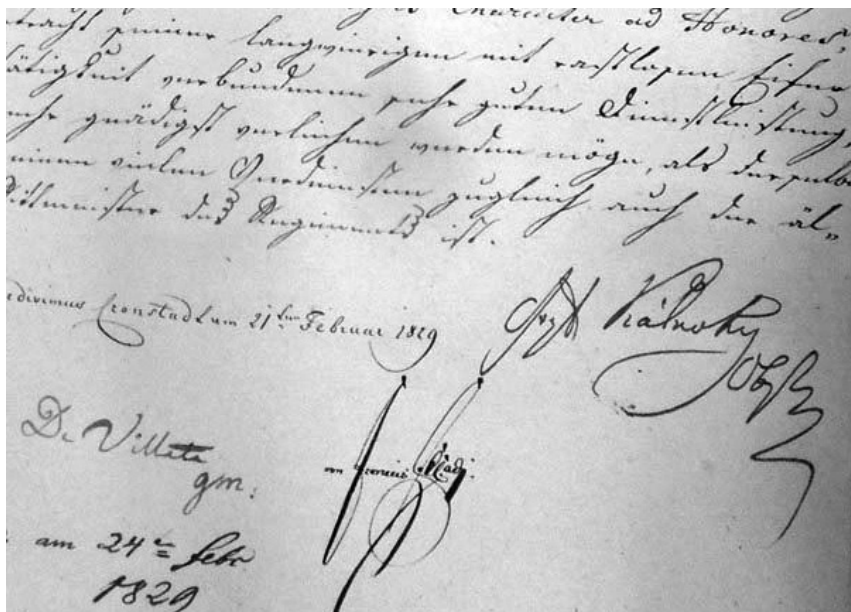 Character ad Honores,
seiner langwierigen mit rastlosen Eifer
tätigkeit verbundenen sehr guten Dienstleistung,
gnädigst verliehen werden möge, als derselbe
seinen vielen Verdiensten zugleich auch der äl„
Rittmeister des Regiments ist.
Cronstadt am 21ten Februar 1829
Kálnoky
Obst
De Villata
gm:
am 24te Febr
1829